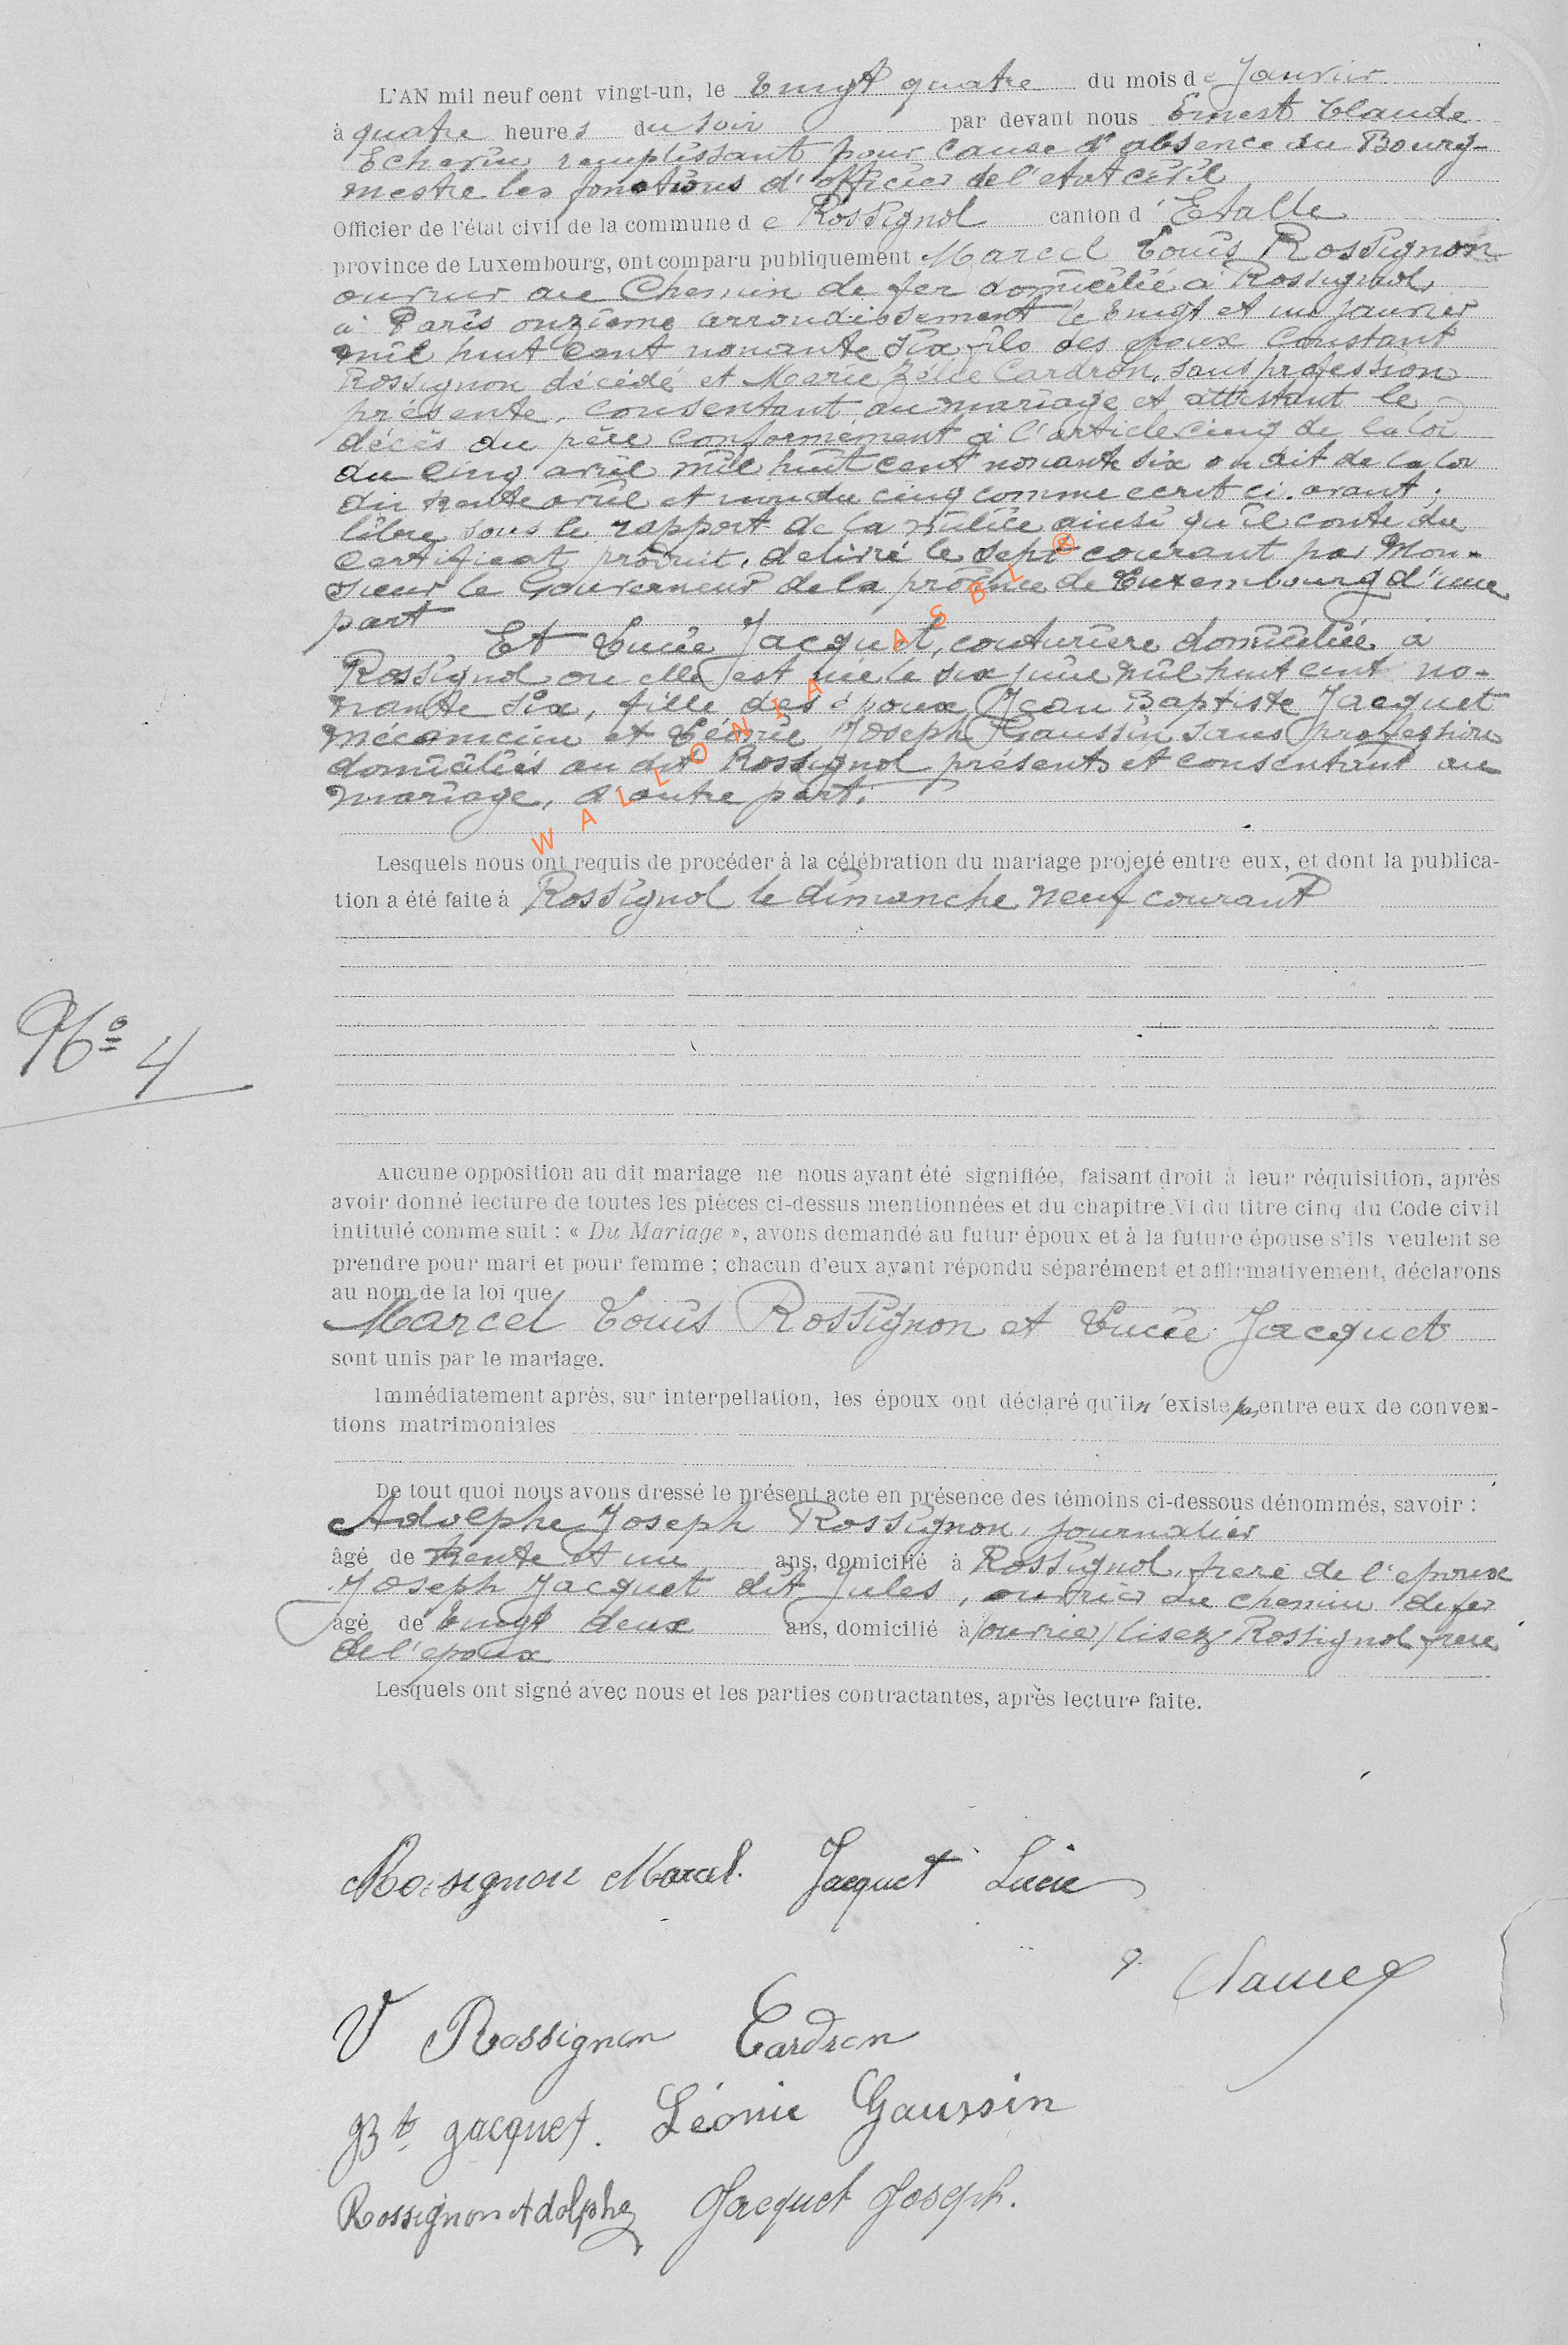 L'AN mil neuf cent vingt-un, le Vingt quatre du mois de Janvier
à quatre heures du soir par devant nous Ernest Claude
Echevin remplissant pour cause d'absence du Bourg-
mestre les fonctions d'officier de l'etat civil
Officier de l'état civil de la commune de Rossignol canton d'Etalle
province de Luxembourg, ont comparu publiquement Marcel Louis Rossignon
ouvrier au Chemin de fer domicilié à Rossignol,
à Paris onzième arrondissement le vingt et un janvier
mil huit cent nonante six fils des époux Constant
Rossignon décédé et Marie Zélie Cardron, sans profession
présente, consentant au mariage et attestant le
décès du père conformément à l'article cinq de la loi
du cinq avril mil huit cent nonante six on dit de la loi
du trente avril et non du cinq comme ecrit ci-avant.
libre sous le rapport de la milice ainsi qu'il conte du
Certificat produit, delivré le sept courant par Mon-
sieur le Gouverneur de la province de Luxembourg d'une
part
Et Lucie Jacquet, couturière domiciliée à
Rossignol ou elle est née le six juin mil huit cent no-
nante six, fille des époux Jean Baptiste Jacquet
mécanicien et Léonie Joseph Gaussin sans profession
domiciliés au dit Rossignol présents et consentant au
mariage, d'autre part.
WALLONIA ASBL ®
Lesquels nous ont requis de procéder à la célébration du mariage projeté entre eux, et dont la publica-
tion a été faite à Rossignol le dimanche neuf courant
No 4
Aucune opposition au dit mariage ne nous ayant été signifiée, faisant droit à leur réquisition, après
avoir donné lecture de toutes les pièces ci-dessus mentionnées et du chapitre VI du titre cinq du Code civil
intitulé comme suit : « Du Mariage », avons demandé au futur époux et à la future épouse s'ils veulent se
prendre pour mari et pour femme ; chacun d'eux ayant répondu séparément et affirmativement, déclarons
au nom de la loi que
Marcel Louis Rossignon et Lucie Jacquet
sont unis par le mariage.
Immédiatement après, sur interpellation, les époux ont déclaré qu'il n'existe pas entre eux de conven-
tions matrimoniales
De tout quoi nous avons dressé le présent acte en présence des témoins ci-dessous dénommés, savoir :
Adolphe Joseph Rossignon, journalier
âgé de trente et un ans, domicilié à Rossignol, frere de l'epoux
Joseph Jacquet dit Jules, ouvrier au chemin de fer
âgé de vingt deux ans, domicilié à (ouvrier) lisez Rossignol frere
de l'epoux
Lesquels ont signé avec nous et les parties contractantes, après lecture faite.
Rossignon Marcel. Jacquet Lucie
Claude
V Rossignon Cardron
JBte Jacquet. Léonie Gaussin
Rossignon Adolphe Jacquet Joseph.